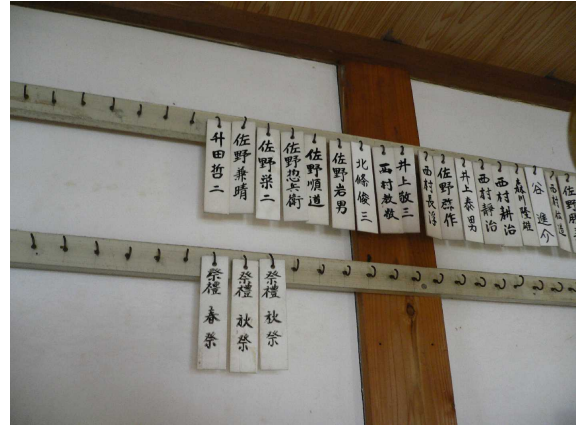 升田哲二
佐野兼晴
佐野栄二
佐野惣兵衛
佐野順道
佐野岩男
北條俊三
西村教敏
井上敬三
西村長淳
佐野弥作
井上泰男
西村靜治
西村耕治
森川隆雄
祭禮 春祭
祭禮 秋祭
祭禮 秋祭